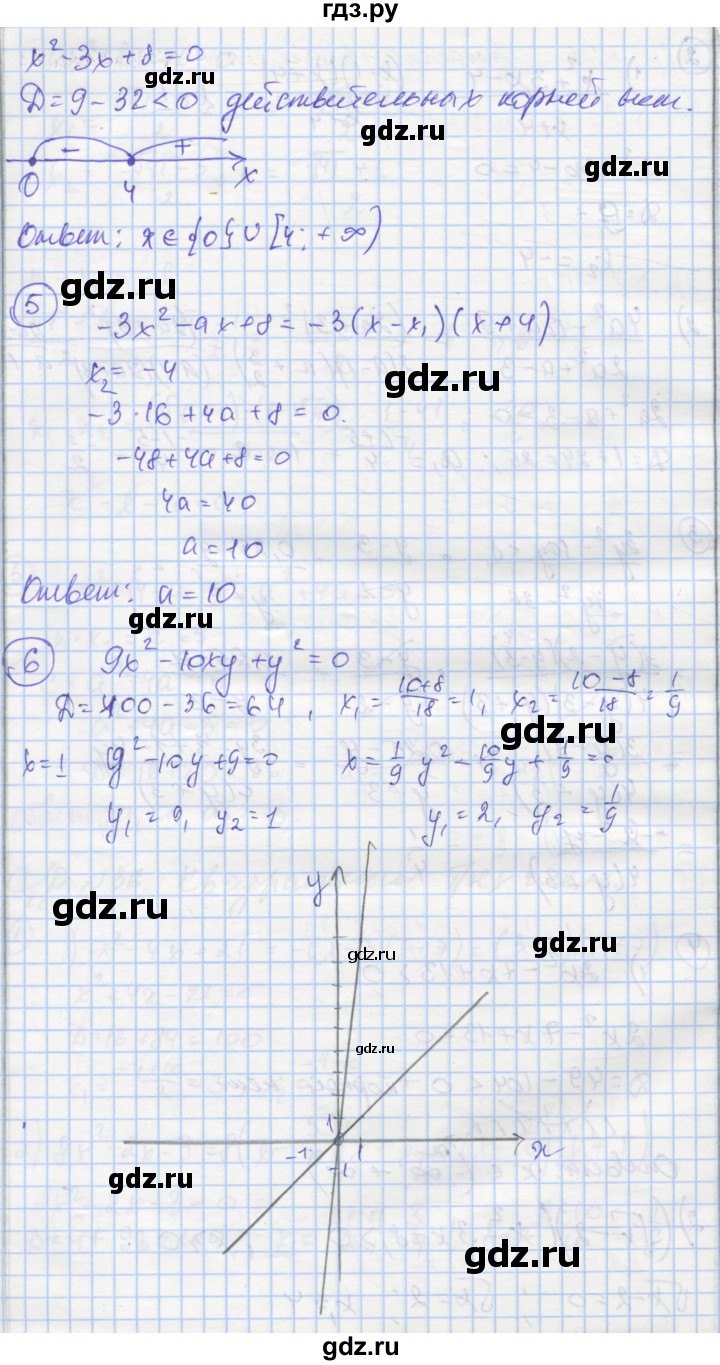 гдз.ру
x² - 3x + 8 = 0
gdz.ru
Д = 9 - 32 < 0 действительных корней нет.
gdz.ru
- +
gdz.ru
0 4 x
Ответ: x ∈ {0} ∪ [4; +∞)
gdz.ru
5
-3x² - ax + 8 = -3(x - x₁)(x + 4)
x₂ = -4
gdz.ru
-3·16 + 4a + 8 = 0.
-48 + 4a + 8 = 0
4a = 40
a = 10
Ответ: a = 10
gdz.ru
6 9x² - 10xy + y² = 0
Д = 100 - 36 = 64, x₁ = (10+8)/18 = 1, x₂ = (10-8)/18 = 1/9
gdz.ru
x = 1 y² - 10y + 9 = 0 x = 1/9 y² - 10/9 y + 1/9 = 0
y₁ = 9, y₂ = 1 y₁ = 2, y₂ = 1/9
y
gdz.ru
gdz.ru
gdz.ru
gdz.ru
1
-1 1 x
-1
gdz.ru
gdz.ru
gdz.ru